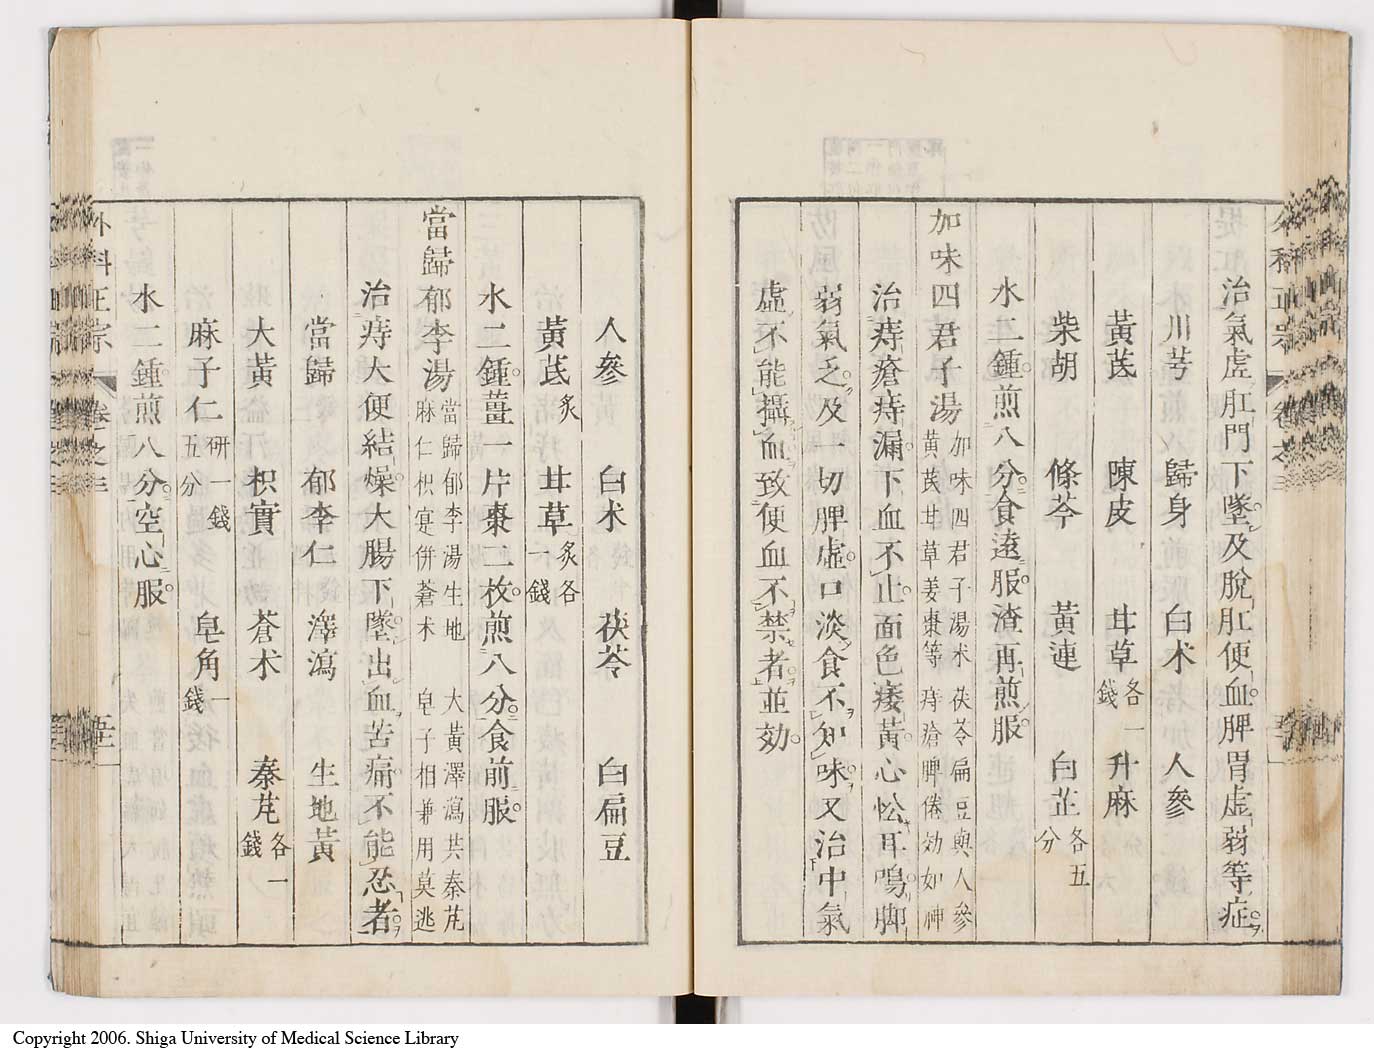 治氣虛肛門下墜及脫肛便血脾胃虛弱等症
川芎 歸身 白朮 人參
黃芪 陳皮 甘草各一錢 升麻
柴胡 條芩 黃連 白芷各五分
水二鍾煎八分食遠服渣再煎服
加味四君子湯 加味四君子湯朮茯苓扁豆與人參
黃芪甘草姜棗等痔瘡脾倦効如神
治痔瘡痔漏下血不止面色痿黃心忪耳鳴脚
弱氣乏及一切脾虛口淡食不知味又治中氣
虛不能攝血致便血不禁者並効
人參 白朮 茯苓 白扁豆
黃芪炙 甘草炙各一錢
水二鍾薑一片棗二枚煎八分食前服
當歸郁李湯 當歸郁李湯生地大黃澤瀉共秦芃
麻仁枳寔併蒼朮皂子相兼用莫逃
治痔大便結燥大腸下墜出血苦痛不能忍者
當歸 郁李仁 澤瀉 生地黃
大黃 枳實 蒼朮 秦芃各一錢
麻子仁研一錢五分 皂角一錢
水二鍾煎八分空心服
外科正宗 卷之三